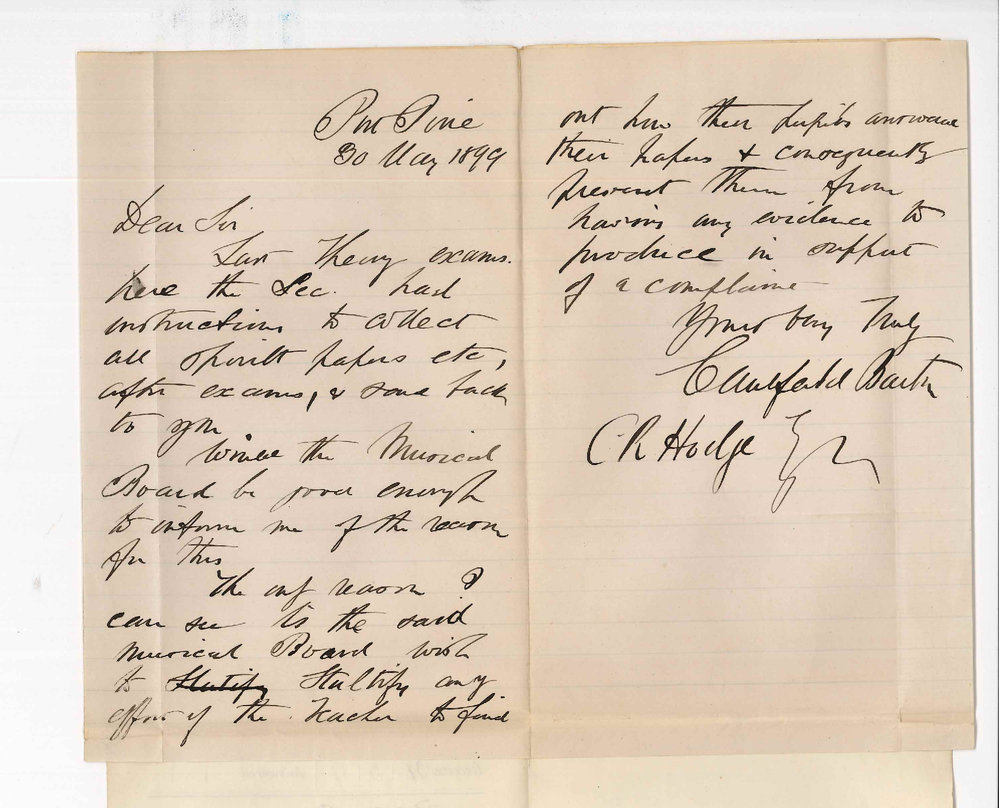 Port Pirie
30 May 1899
Dear Sir
Last Theory exams.
here the Sec. had
instructions to collect
all spoilt papers etc,
after exams, & send back
to you
Would the Musical
Board be good enough
to inform me of the reason
for this
The only reason I
can see is the said
Musical Board wish
to Stultify any
effort of the Teacher to find
out how their pupils answered
their papers & consequently
prevent them from
having any evidence to
produce in support
of a complaint
Yours very Truly
Caulfeild Barton
C R Hodge Esq